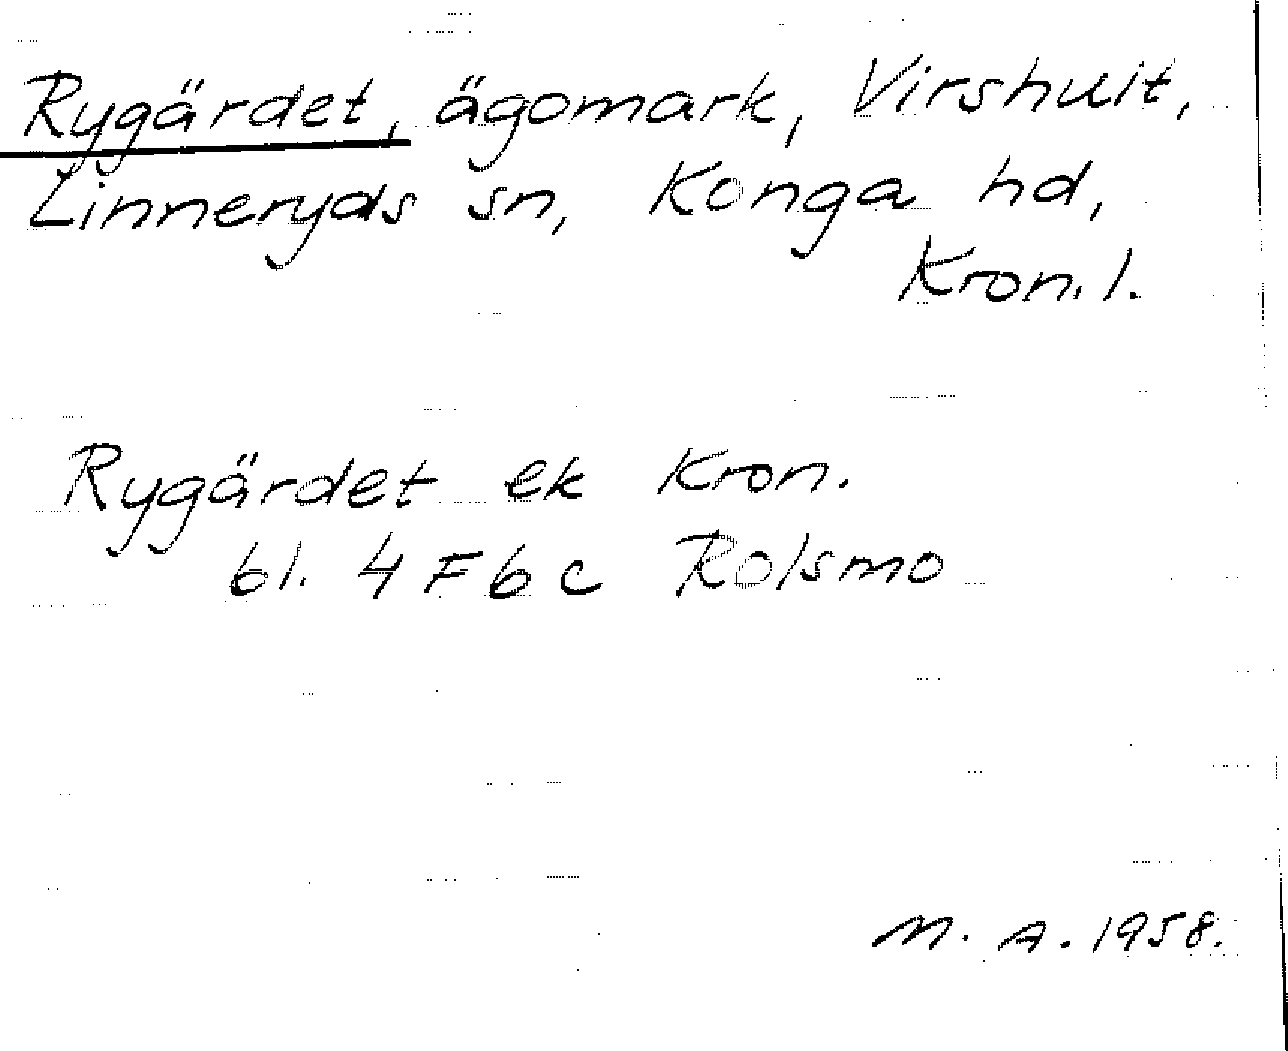 Rygärdet, ägomark, Virshult,
Linneryds sn, Konga hd,
Kron.l.
Rygärdet ek Kron.
bl. 4 F 6 c Rolsmo
M. A. 1958.